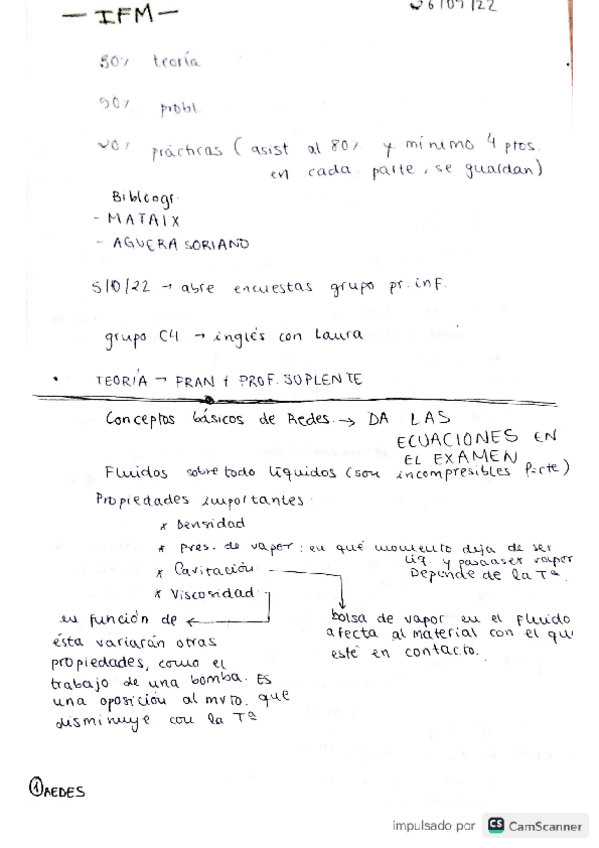 — IFM —
26/09/22
50% teoría
50% probl.
20% prácticas ( asist al 80% y mínimo 4 ptos.
en cada parte, se guardan)
Bibliogr
- MATAIX
- AGUERA SORIANO
→ abre encuestas grupo pr. inf.
grupo C4 → inglés con Laura
• TEORÍA → FRAN + PROF. SUPLENTE
Conceptos básicos de Redes. → DA LAS
ECUACIONES EN
EL EXAMEN
Fluidos sobre todo líquidos (son incompresibles ρ=cte)
Propiedades importantes:
* Densidad
* pres. de vapor: en qué momento deja de ser
liq. y pasa a ser vapor
Depende de la Tª
* Cavitación
* Viscosidad
en función de
ésta variarán otras
propiedades, como el
trabajo de una bomba. ES
una oposición al mvto. que
disminuye con la Tª
bolsa de vapor en el fluido
afecta al material con el qu
esté en contacto.
① REDES
impulsado por CS CamScanner